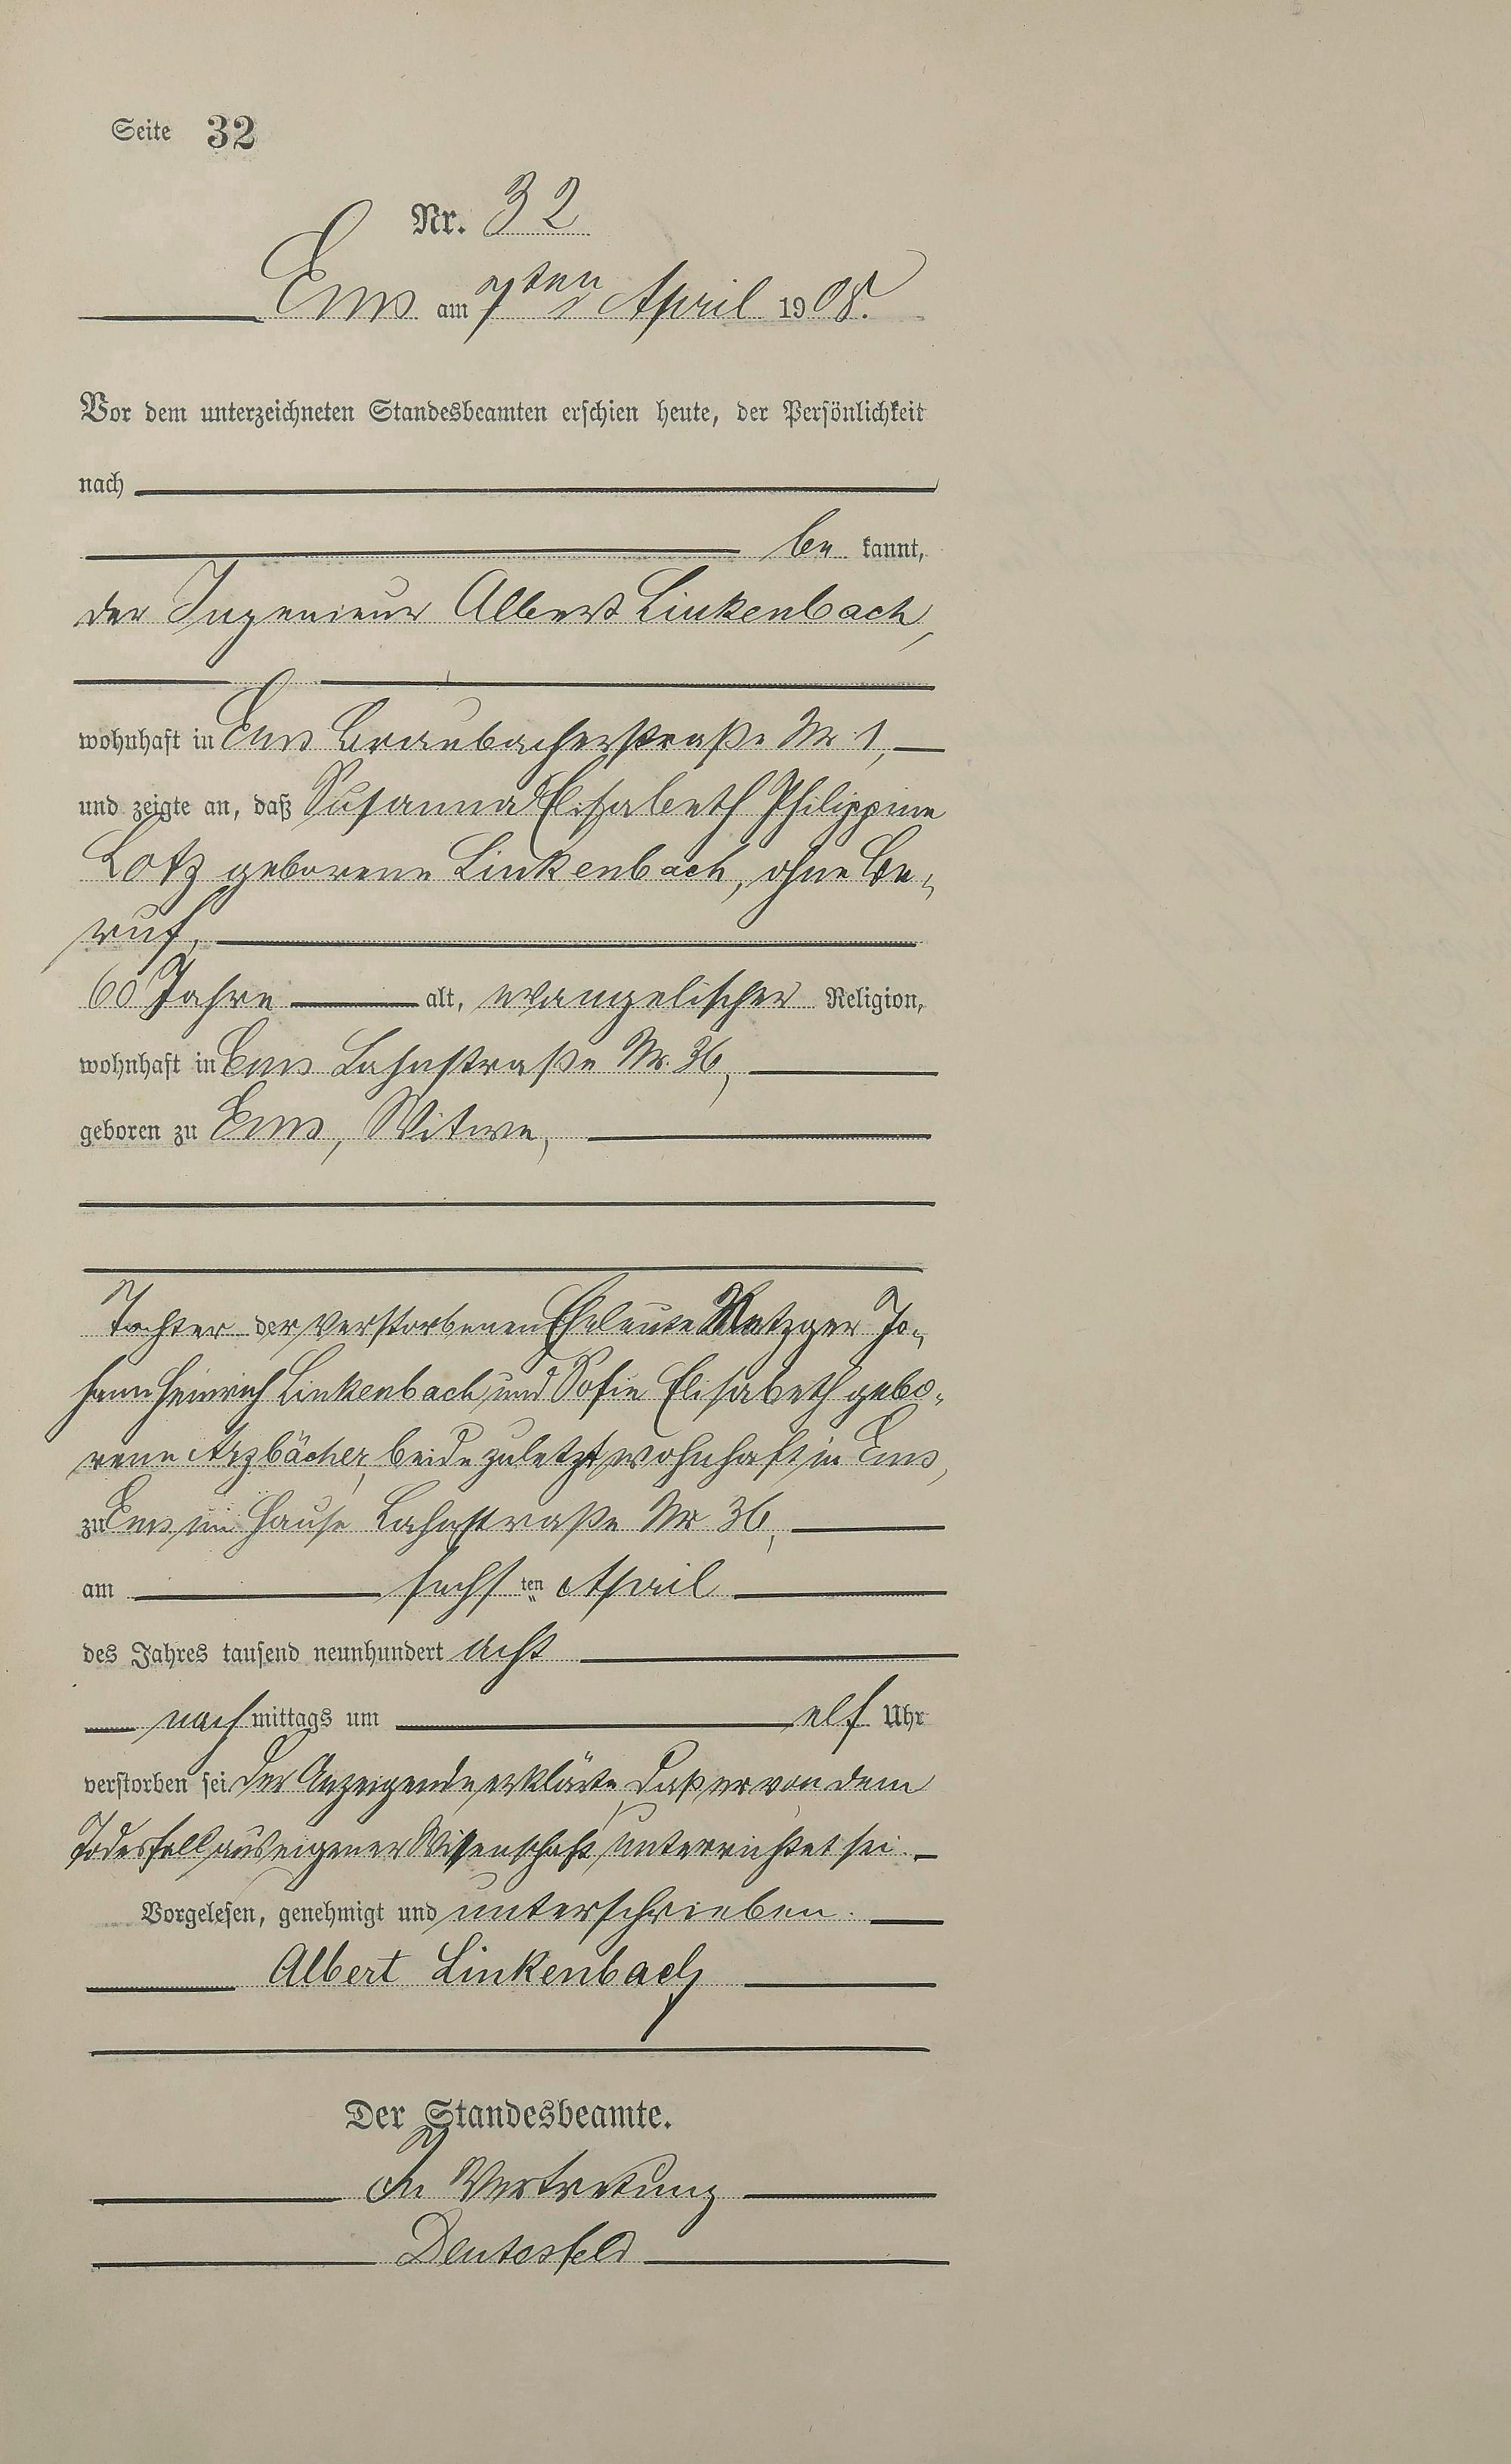 Seite 32
Nr. 32
Ems am 7ten April 1908.
Vor dem unterzeichneten Standesbeamten erschien heute, der Persönlichkeit
nach
be kannt,
der Ingenieur Albert Linkenbach,
wohnhaft in Ems Braubacherstraße Nr. 1,
und zeigte an, daß Susanna Elisabeth Philippine
Lotz geborene Linkenbach, ohne Be-
ruf,
60 Jahre alt, evangelischer Religion,
wohnhaft in Ems Lahnstraße Nr. 36,
geboren zu Ems, Witwe,
Tochter der verstorbenen Eheleute Metzger Jo-
hann Heinrich Linkenbach und Sofie Elisabeth gebo-
rene Arzbächer, beide zuletzt wohnhaft in Ems,
zu Ems im Hause Lahnstraße Nr 36,
am sechs ten April
des Jahres tausend neunhundert acht
nach mittags um elf Uhr
verstorben sei. Der Anzeigende erklärte, daß er von dem
Todesfall aus eigener Wissenschaft unterrichtet sei.
Vorgelesen, genehmigt und unterschrieben.
Albert Linkenbach
Der Standesbeamte.
In Vertretung